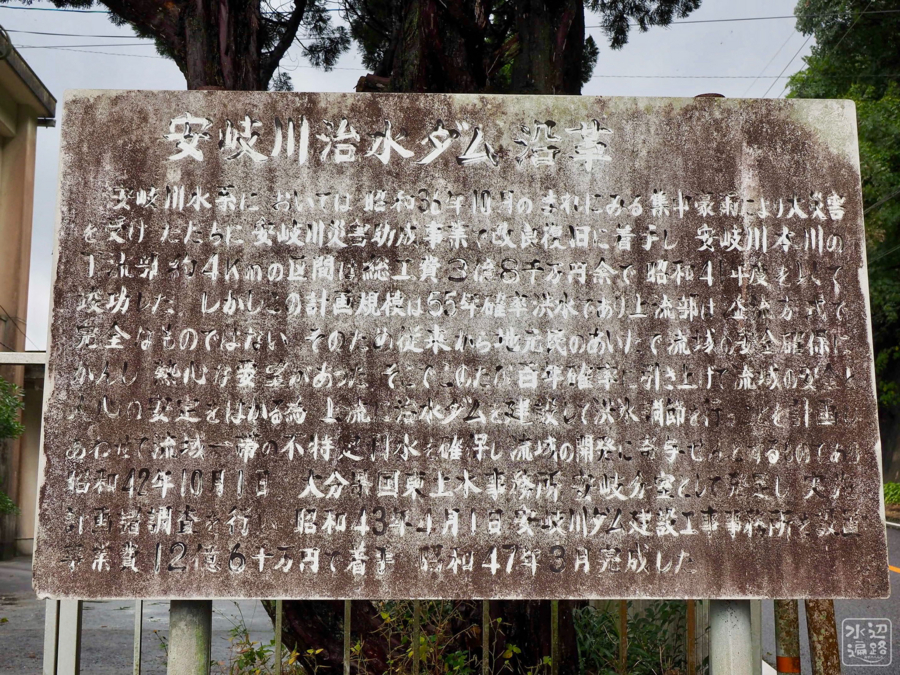 安岐川治水ダム沿革
安岐川水系においては 昭和36年10月の まれにみる集中豪雨により大災害
を受け ただちに 安岐川災害助成事業で改良復旧に着手し 安岐川本川の
下流部 約4Kmの区間は 総工費 3億8千万円余で 昭和41年度を以て
竣功した しかしこの計画規模は55年確率洪水であり上流部は 溢流方式で
完全なものではない そのため従来から地元民のあいだで流域の安全確保に
かんし 熱心な要望があった そこでこのたび百年確率に引き上げて流域の安全と
安定をはかる為 上流に治水ダムを建設して洪水調節を行
あわせて流域一帯の不特定用水を確保し 流域の開発に寄与
昭和42年10月1日 大分県国東土木事務所 安岐分室として発足し
計画調査を行い 昭和43年4月1日安岐川ダム建設工事事務所を設置
事業費 12億6千万円で着手 昭和47年3月完成した
水辺遍路